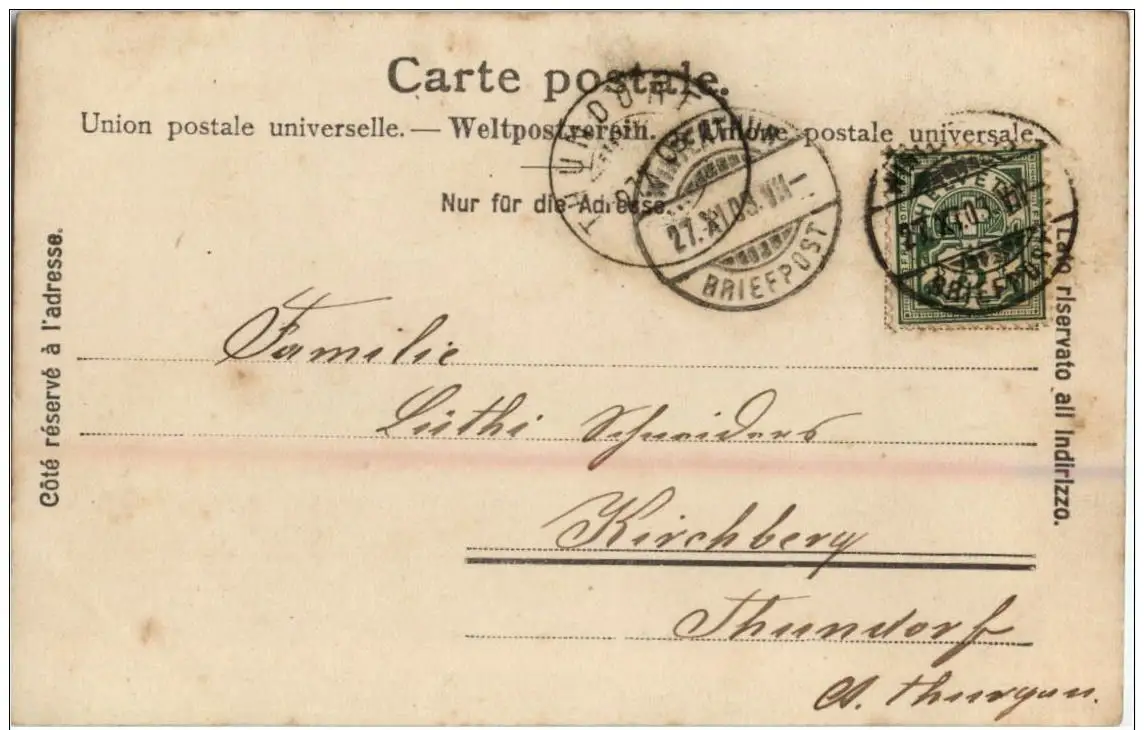 Carte postale.
Union postale universelle. — Weltpostverein. — Unione postale universale.
Nur für die Adresse.
THUNDORF
WINTERTHUR
27. XI. 03. VII —
BRIEFPOST
WINTERTHUR
27. XI. 03. VII —
BRIEFPOST
HELVETIA
Côté réservé à l'adresse.
Lato riservato all indirizzo.
Familie
Lüthi Schneiders
Kirchberg
Thundorf
Ct. Thurgau.